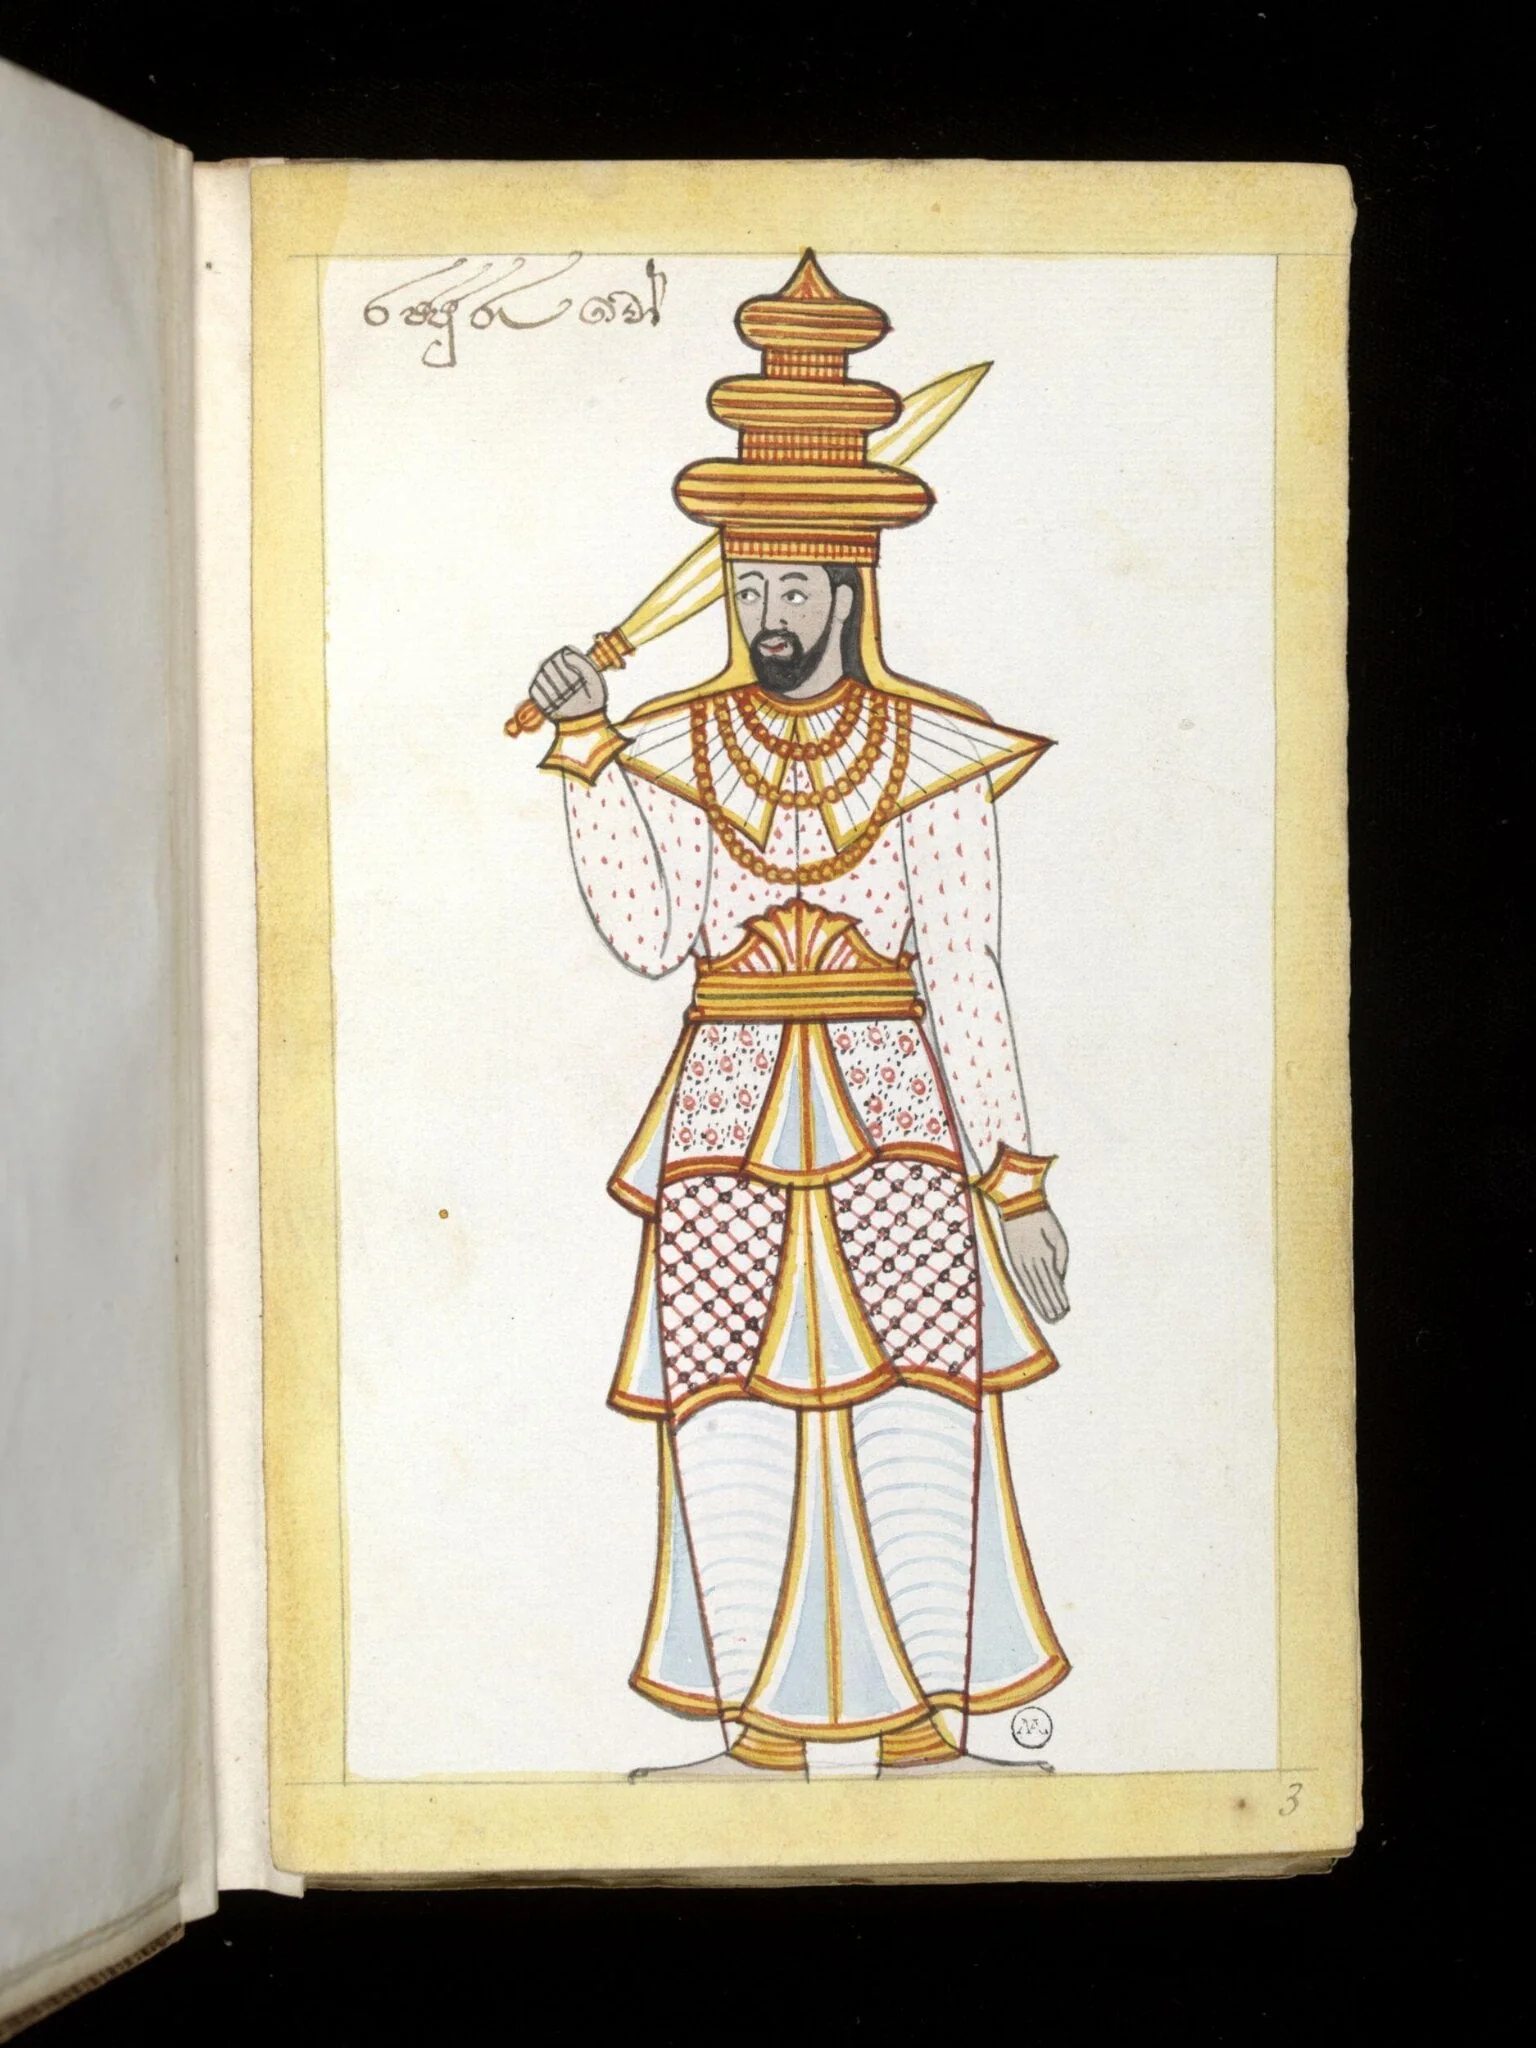 රජ්ජුරුවෝ
3